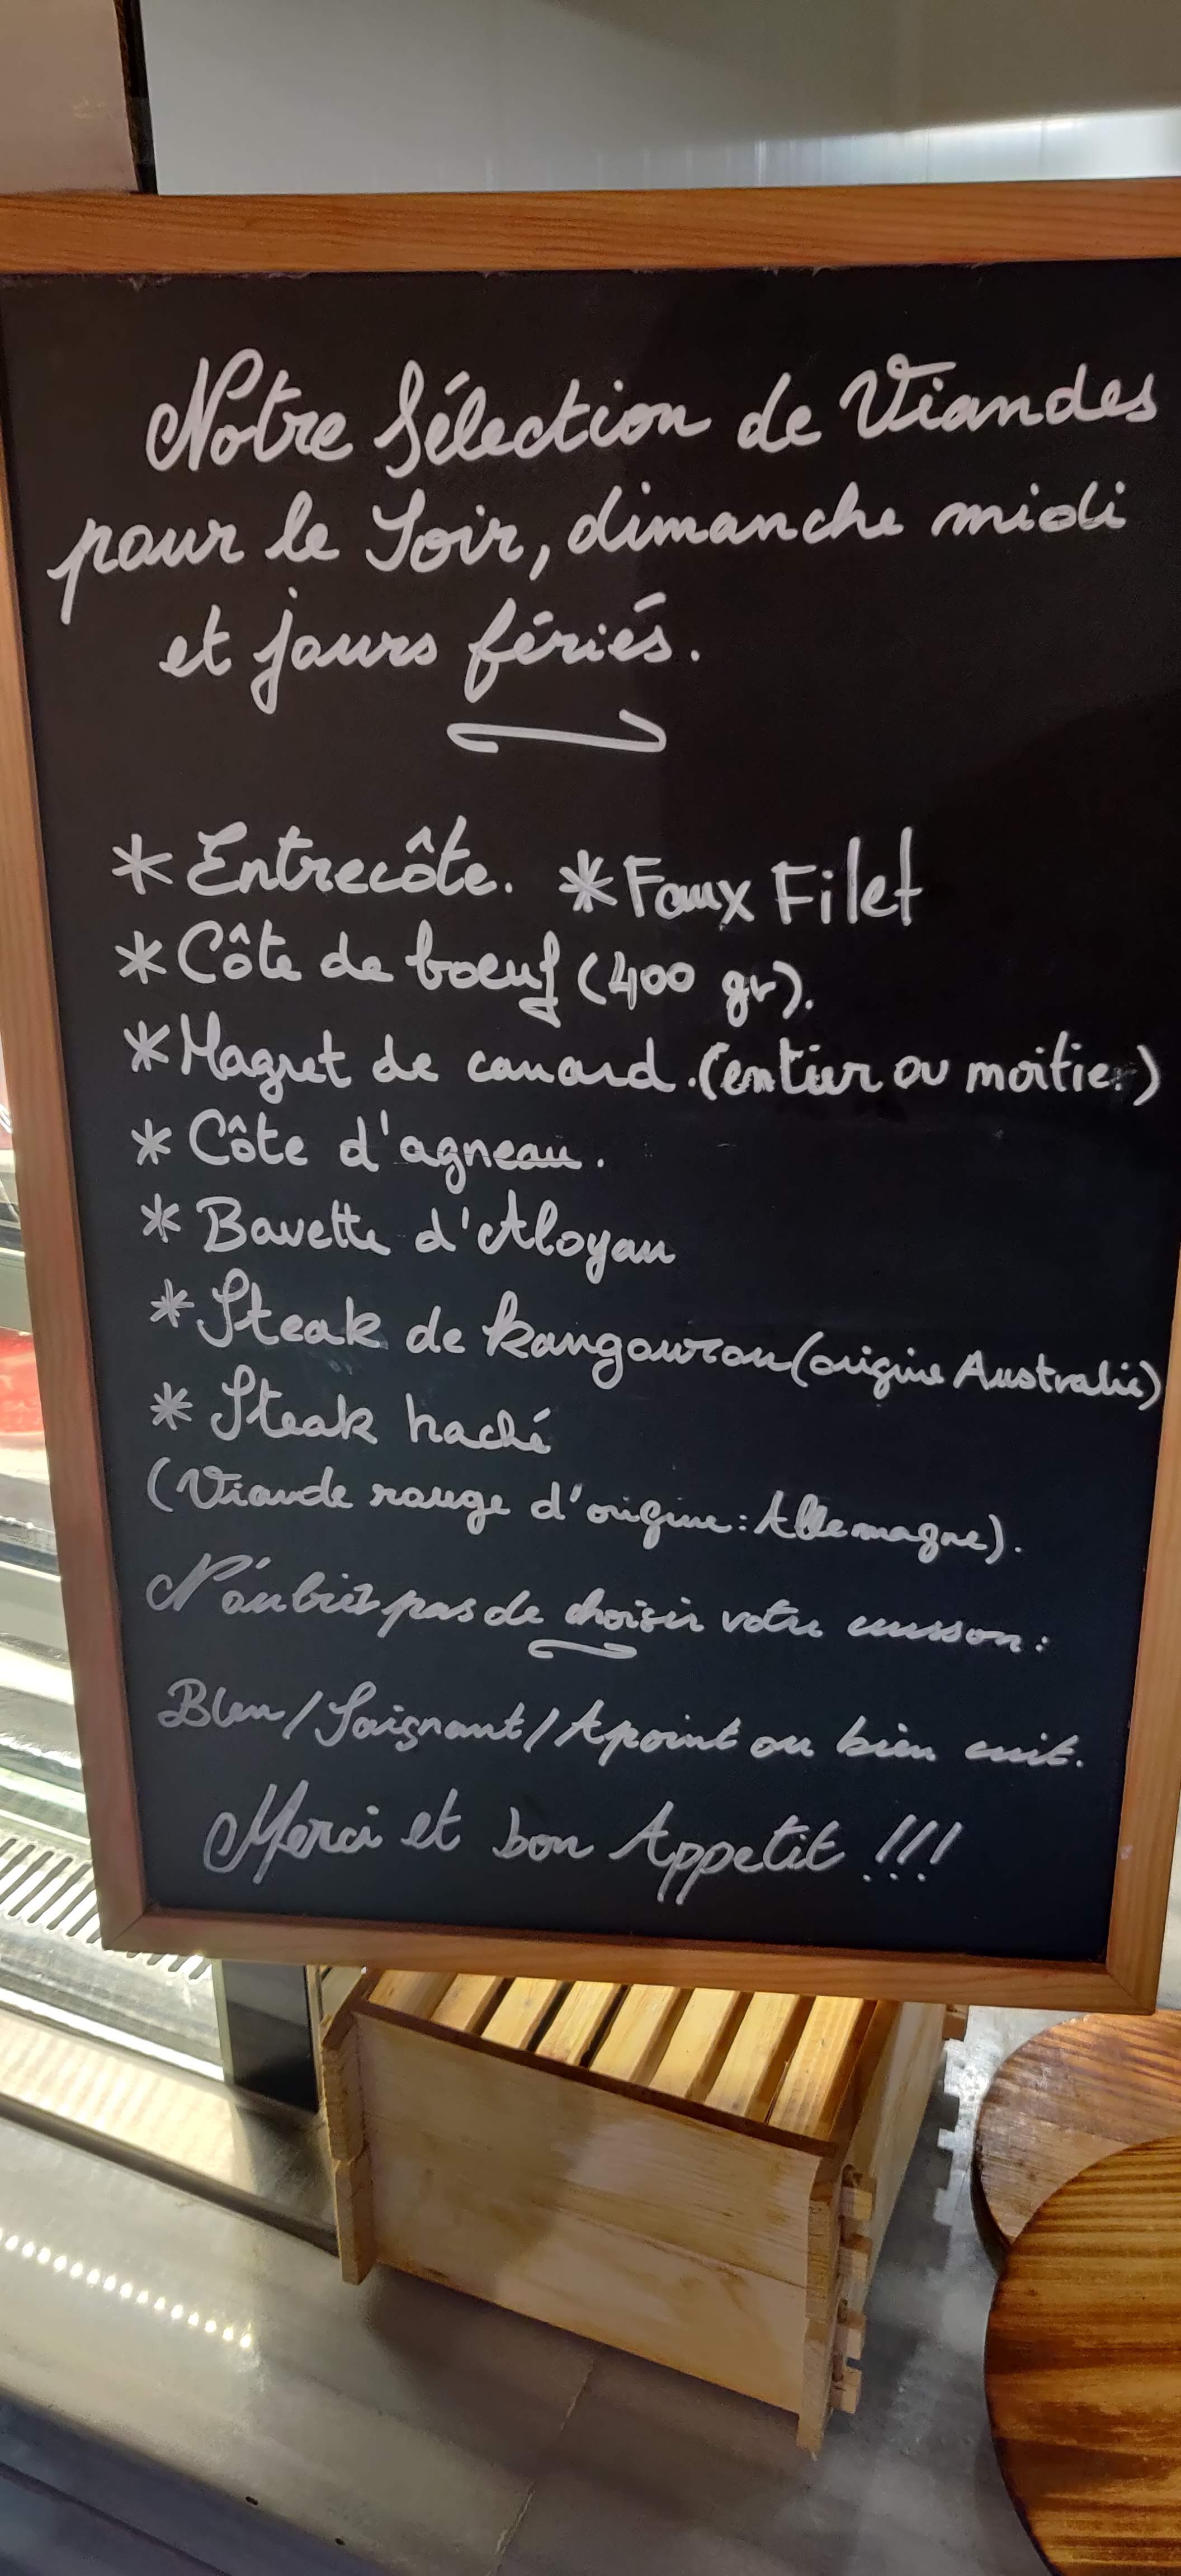 Notre Sélection de Viandes
pour le Soir, dimanche midi
et jours fériés.
* Entrecôte. * Faux Filet
* Côte de boeuf (400 gr).
* Magret de canard. (entier ou moitie.)
* Côte d'agneau.
* Bavette d'Aloyau
* Steak de kangourou (origine Australie)
* Steak haché
(Viande rouge d'origine : Allemagne).
N'oubiez pas de choisir votre cuisson :
Bleu / Saignant / A point ou bien cuit.
Merci et bon Appetit !!!